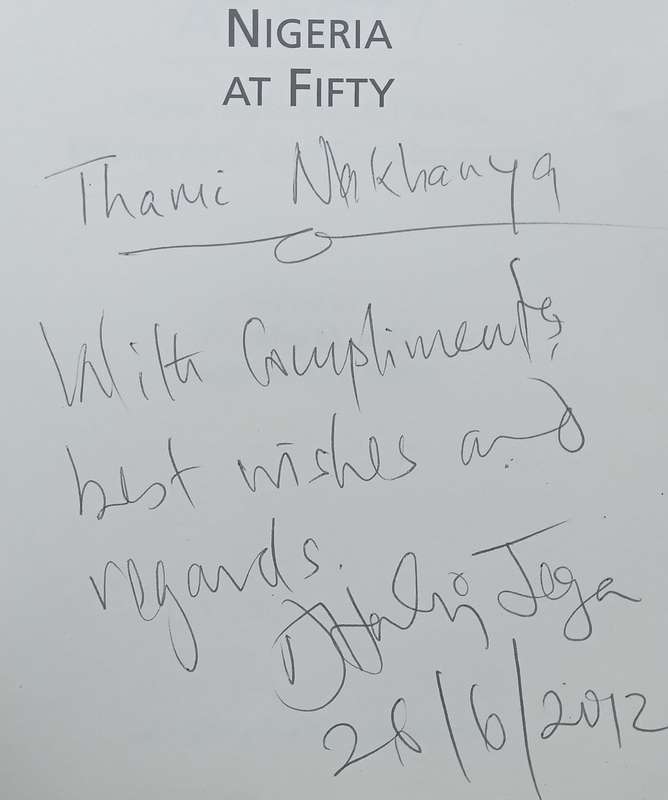 NIGERIA
AT FIFTY
Thami Nakhanya
With Compliments,
best wishes and
regards.
Jega
28/6/2012